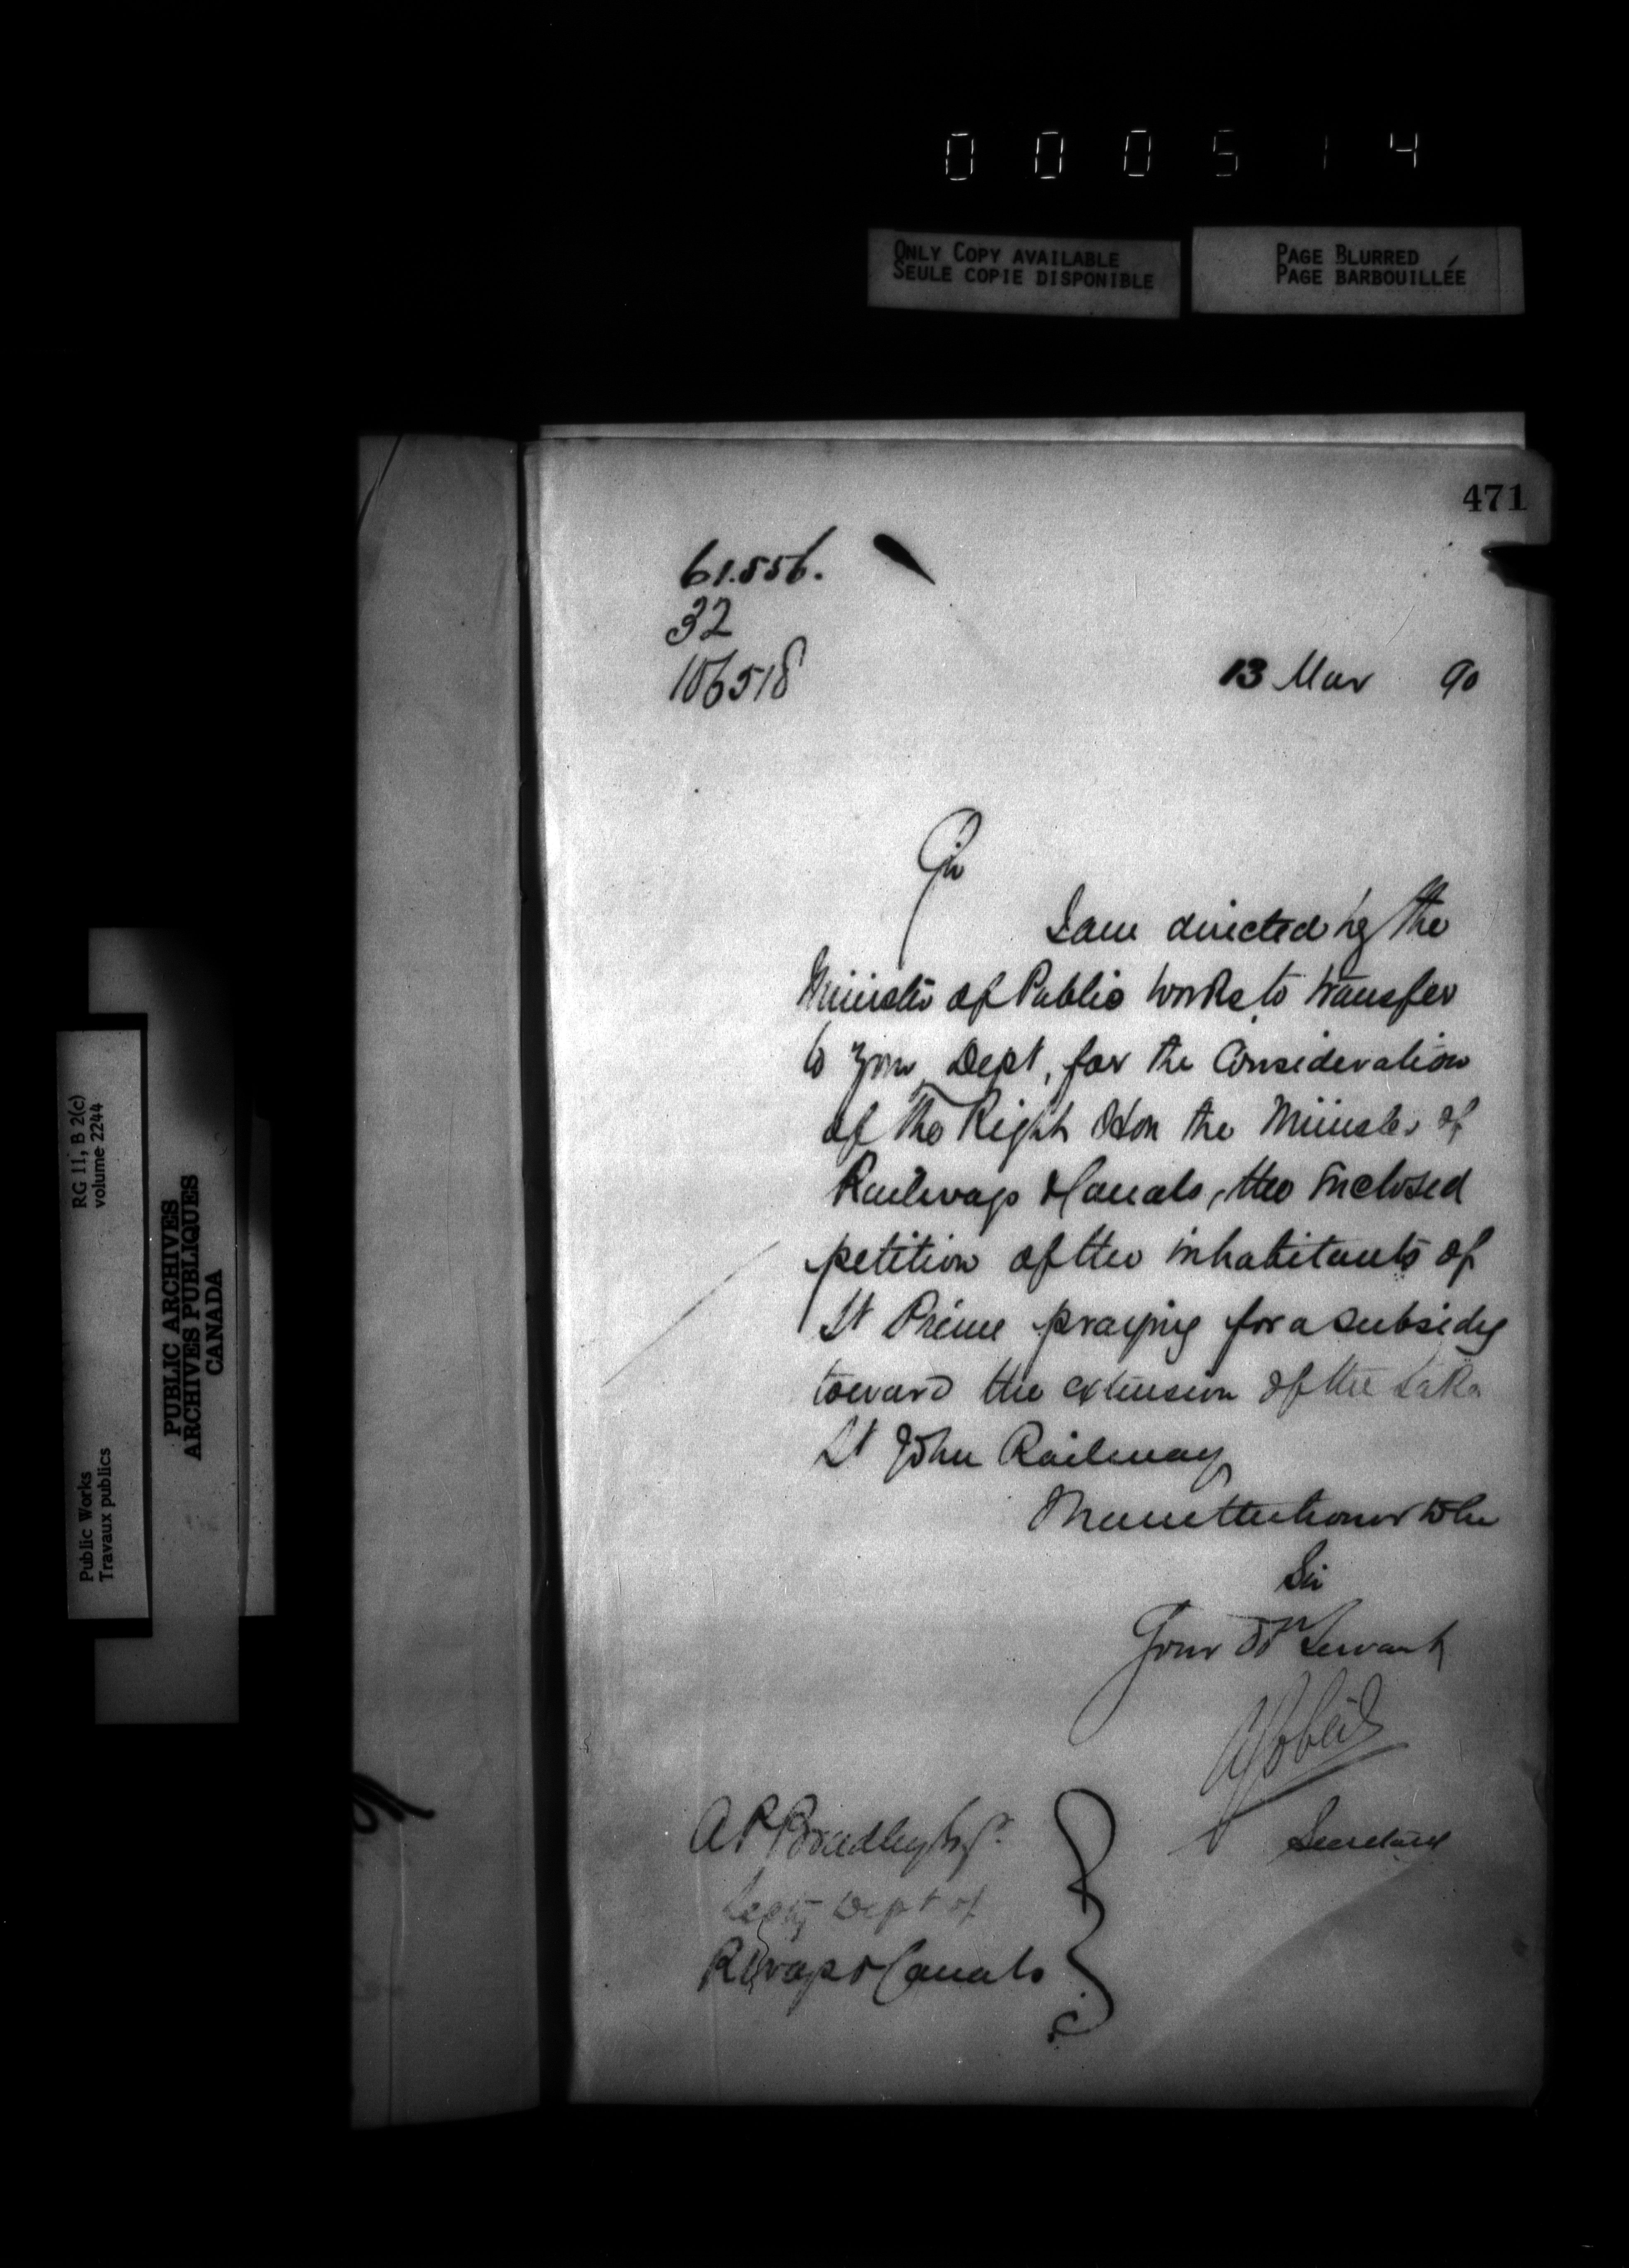 000514
ONLY COPY AVAILABLE
SEULE COPIE DISPONIBLE
PAGE BLURRED
PAGE BARBOUILLÉE
471
61.556.
32
106518
13 Mar 90
Sir
I am directed by the
Minister of Public Works to transfer
to your Dept, for the Consideration
of the Right Hon the Minister of
Railways & Canals, the inclosed
petition of the inhabitants of
St Prime praying for a subsidy
toward the extension of the Lake
St John Railway
the honor to be
Sir
Your Ob Servant
Secretary
A P Bradley Esq.
Secty Dept of
Rlways & Canals
RG 11, B 2(c)
volume 2244
PUBLIC ARCHIVES
ARCHIVES PUBLIQUES
CANADA
Public Works
Travaux publics